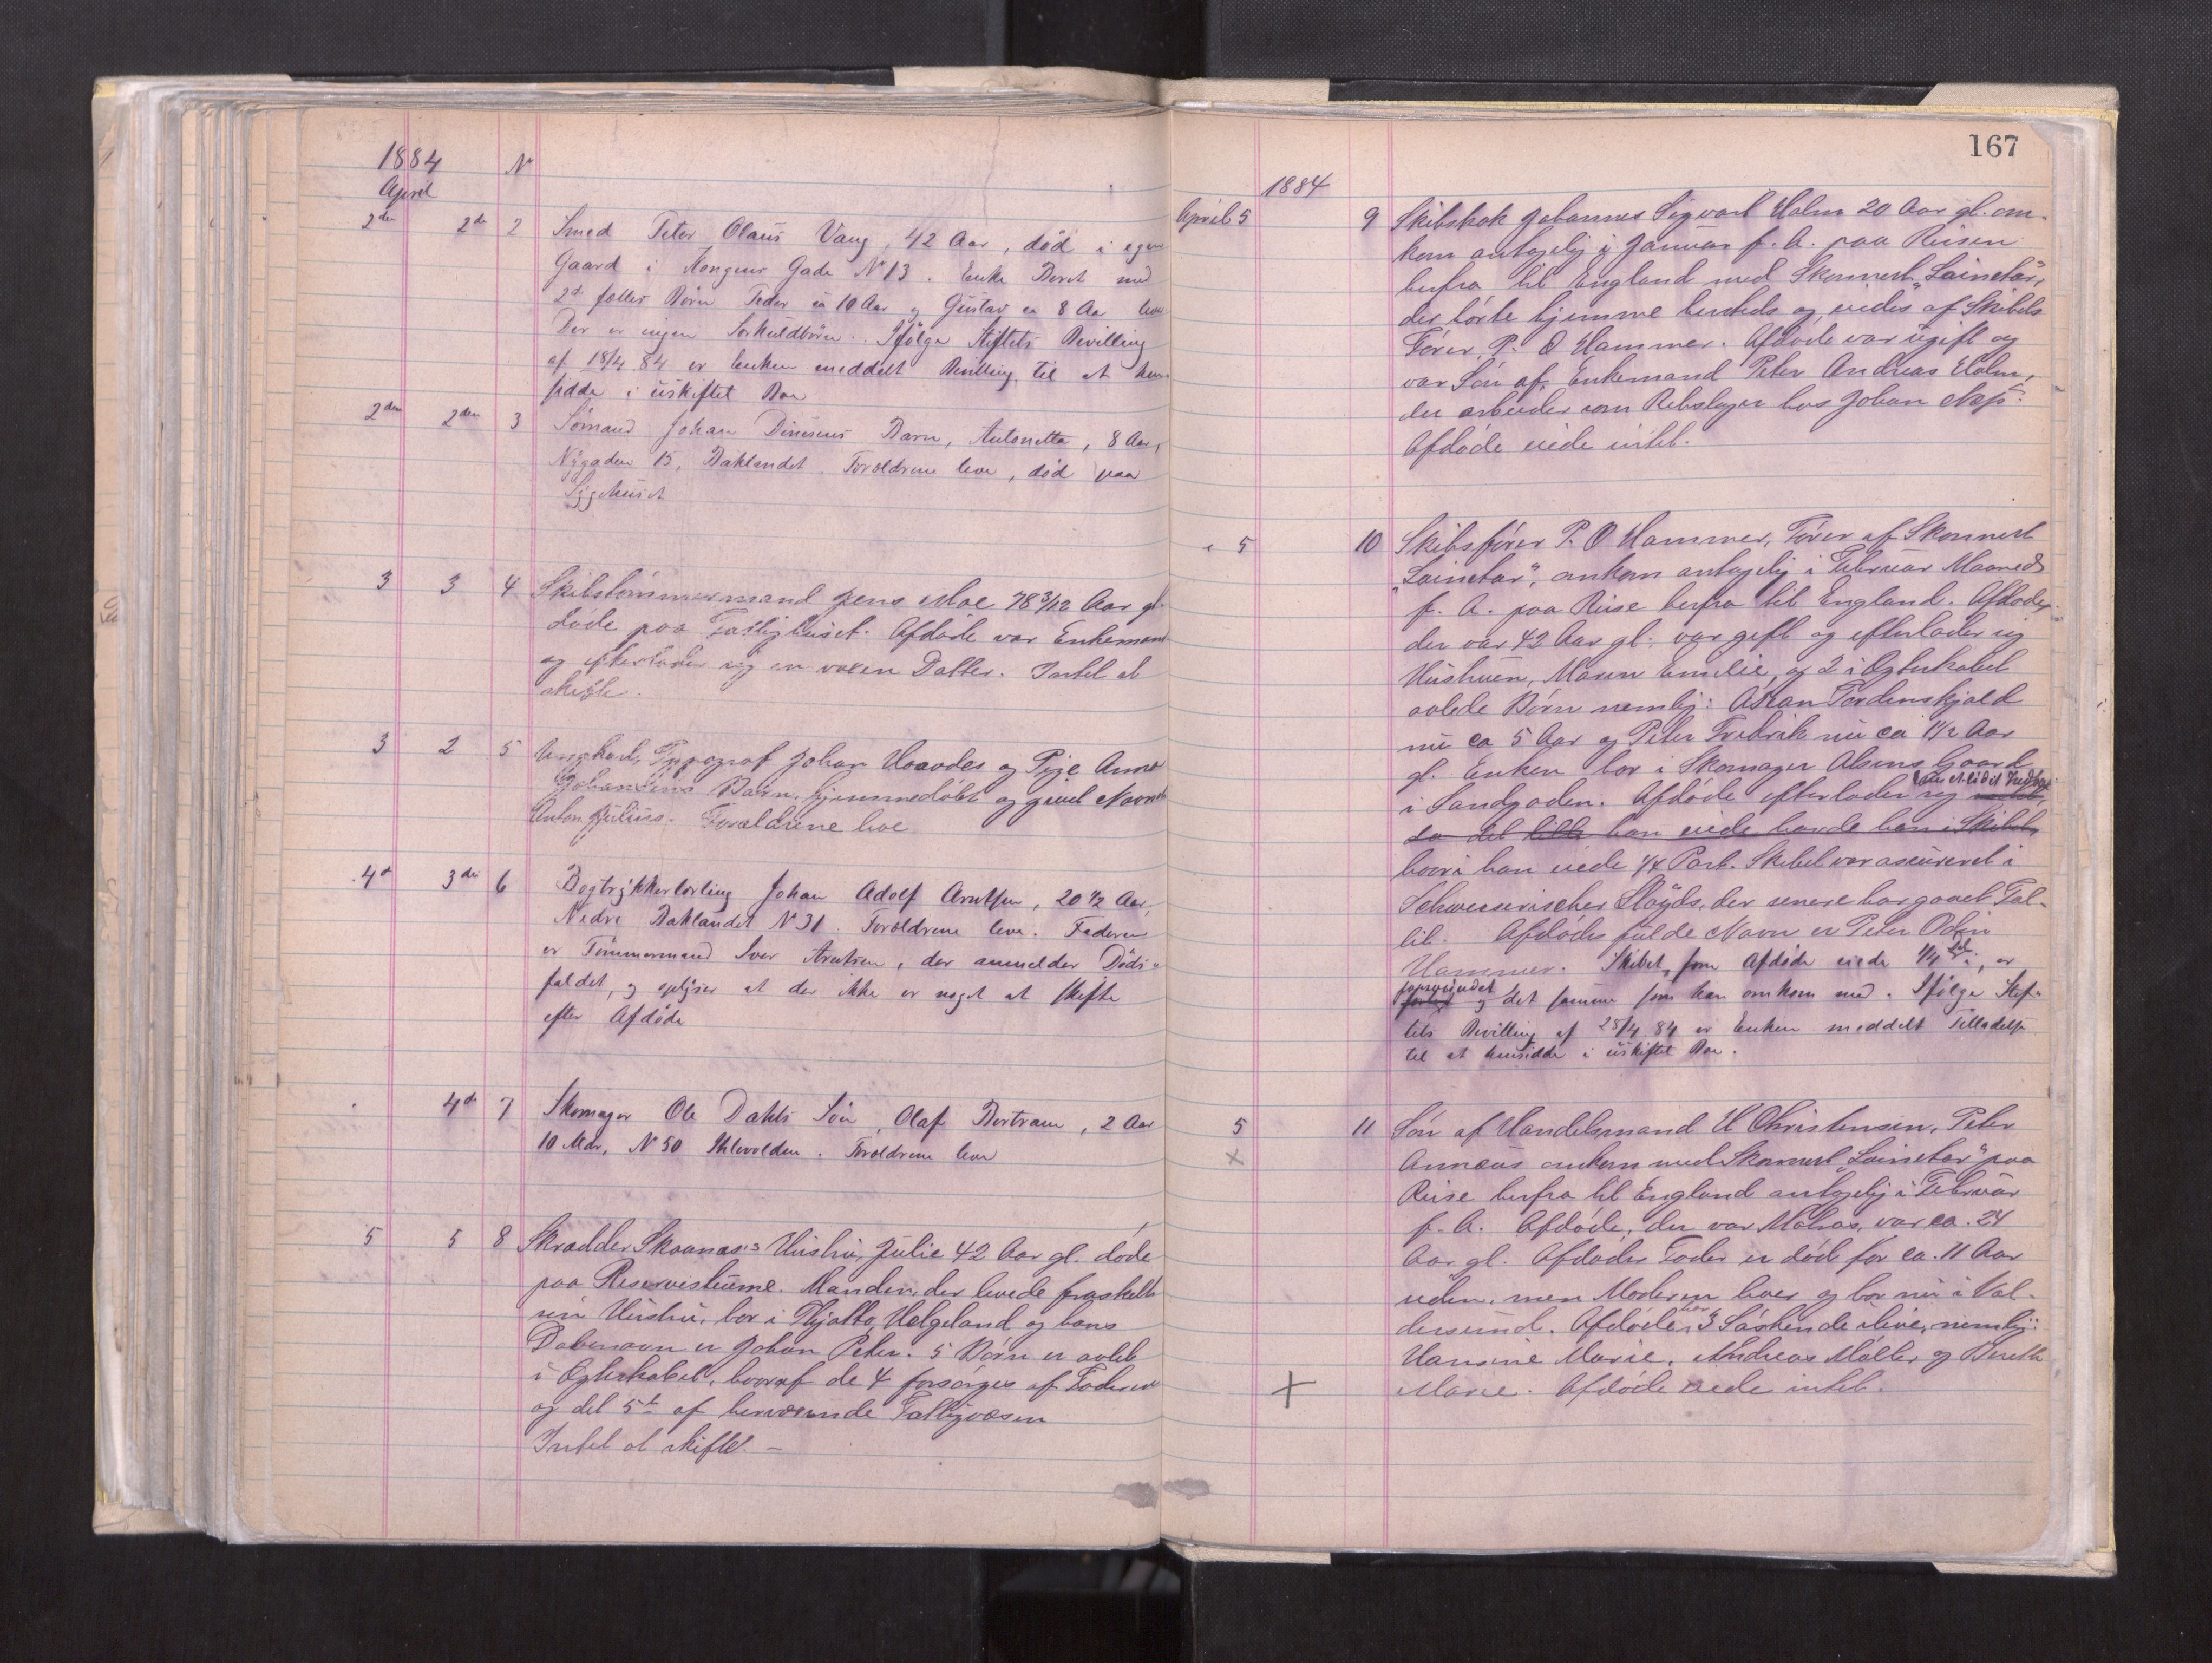 1884
April
N
2den 2de 2 Smed Peter Olaus Vang, 42 Aar, død i egen
Gaard i Kongens Gade N 13. Enke Beret med
2de fælles Børn Peder ca 10 Aar og Gustav ca 8 Aar lever
Der er ingen Særkuldbørn. Ifølge Stiftets Bevilling
af 18/4 84 er Enken meddelt Bevilling til at hen-
sidde i uskiftet Bo
2den 2den 3 Sømand Johan Dinesens Barn, Antonette, 8 Aar,
Nygaden 15, Baklandet. Forældrene leve, død paa
Sygehuset
3 3 4 Skibstømmermand Jens Moe 78 3/12 Aar gl.
døde paa Fattighuset. Afdøde var Enkemand
og efterlader sig en voxen Datter. Intet at
skifte.
3 2 5 Typograf Johan og Pige Anne
Johansens Barn, hjemmedøbt og givet Navnet
Anton Julius. Forældrene leve
4de 3die 6 Bogtrykkerlærling Johan Adolf Arntsen, 20 1/2 Aar,
Nedre Baklandet N 31. Forældrene leve. Faderen
er Tømmermand Iver Arntsen, der anmelder Døds-
faldet, og oplyser at der ikke er noget at skifte
efter Afdøde
4de 7 Skomager Ole Dahls Søn, Olaf Bertram, 2 Aar
10 Mdr, N 50 Ihlevolden. Forældrene leve
5 5 8 Skrædder Skaanas's Hustru, Julie 42 Aar gl. døde
paa Reservestuerne. Manden, der levede fraskilt
sin Hustru, bor i Helgeland og hans
Døbenavn er Johan Peter. 5 Børn er avlet
i Ægteskabet, hvoraf de 4 forsørges af Faderen
og det 5te af herværende Fattigvæsen
Intet at skifte. –
167
1884
April 5 9 Skibskok Johannes Sigvart Holm 20 Aar gl. om-
kom antagelig i Januar f. A. paa Reisen
herfra til England med Skonnert "Lainetar",
der hørte hjemme hersteds og eiedes af Skibets
Fører, P. O Hammer. Afdøde var ugift og
var Søn af Enkemand Peter Andreas Holm,
der arbeider som Rebslager hos Johan
Afdøde eiede intet.
" 5 10 Skibsfører P. O Hammer, Fører af Skonnert
"Lainetar", omkom antagelig i Februar Maaned
f. A. paa Reise herfra til England. Afdøde,
der var 42 Aar gl. var gift og efterlader sig
Hustruen, Maren Emilie, og 2 i Ægteskabet
avlede Børn nemlig: Tordenskjold
nu ca 5 Aar og Peter Fredrik nu ca 1 1/2 Aar
gl. Enken bor i Skomager Alsens Gaard
i Sandgaden. Afdøde efterlader sig
da det lille han eiede havde han i Skibet,
hvori han eiede 1/4 Part. Skibet var assureret i
Schweizerischer Lloyds, der senere har gaaet Fal-
lit. Afdødes fulde Navn er Peter Odin
Hammer. Skibet, som Afdøde eiede 1/4 del i, er
forsvundet
forlist og det samme som han omkom med. Ifølge Stif-
tets Bevilling af 25/4 84 er Enken meddelt Tilladelse
til at hensidde i uskiftet Bo.
5 11 Søn af Handelsmand H Christensen, Peter
× Annæus omkom med Skonnert "Lainetar" paa
Reise herfra til England antagelig i Februar
f. A. Afdøde, der var Matros, var ca. 24
Aar gl. Afdødes Fader er død for ca. 11 Aar
siden, men Moderen lever og bor nu i Val-
dersund. Afdøde har 3 Søskende ilive, nemlig:
Hansine Marie, Andreas Møller og Bereth
× Marie. Afdøde eiede intet.